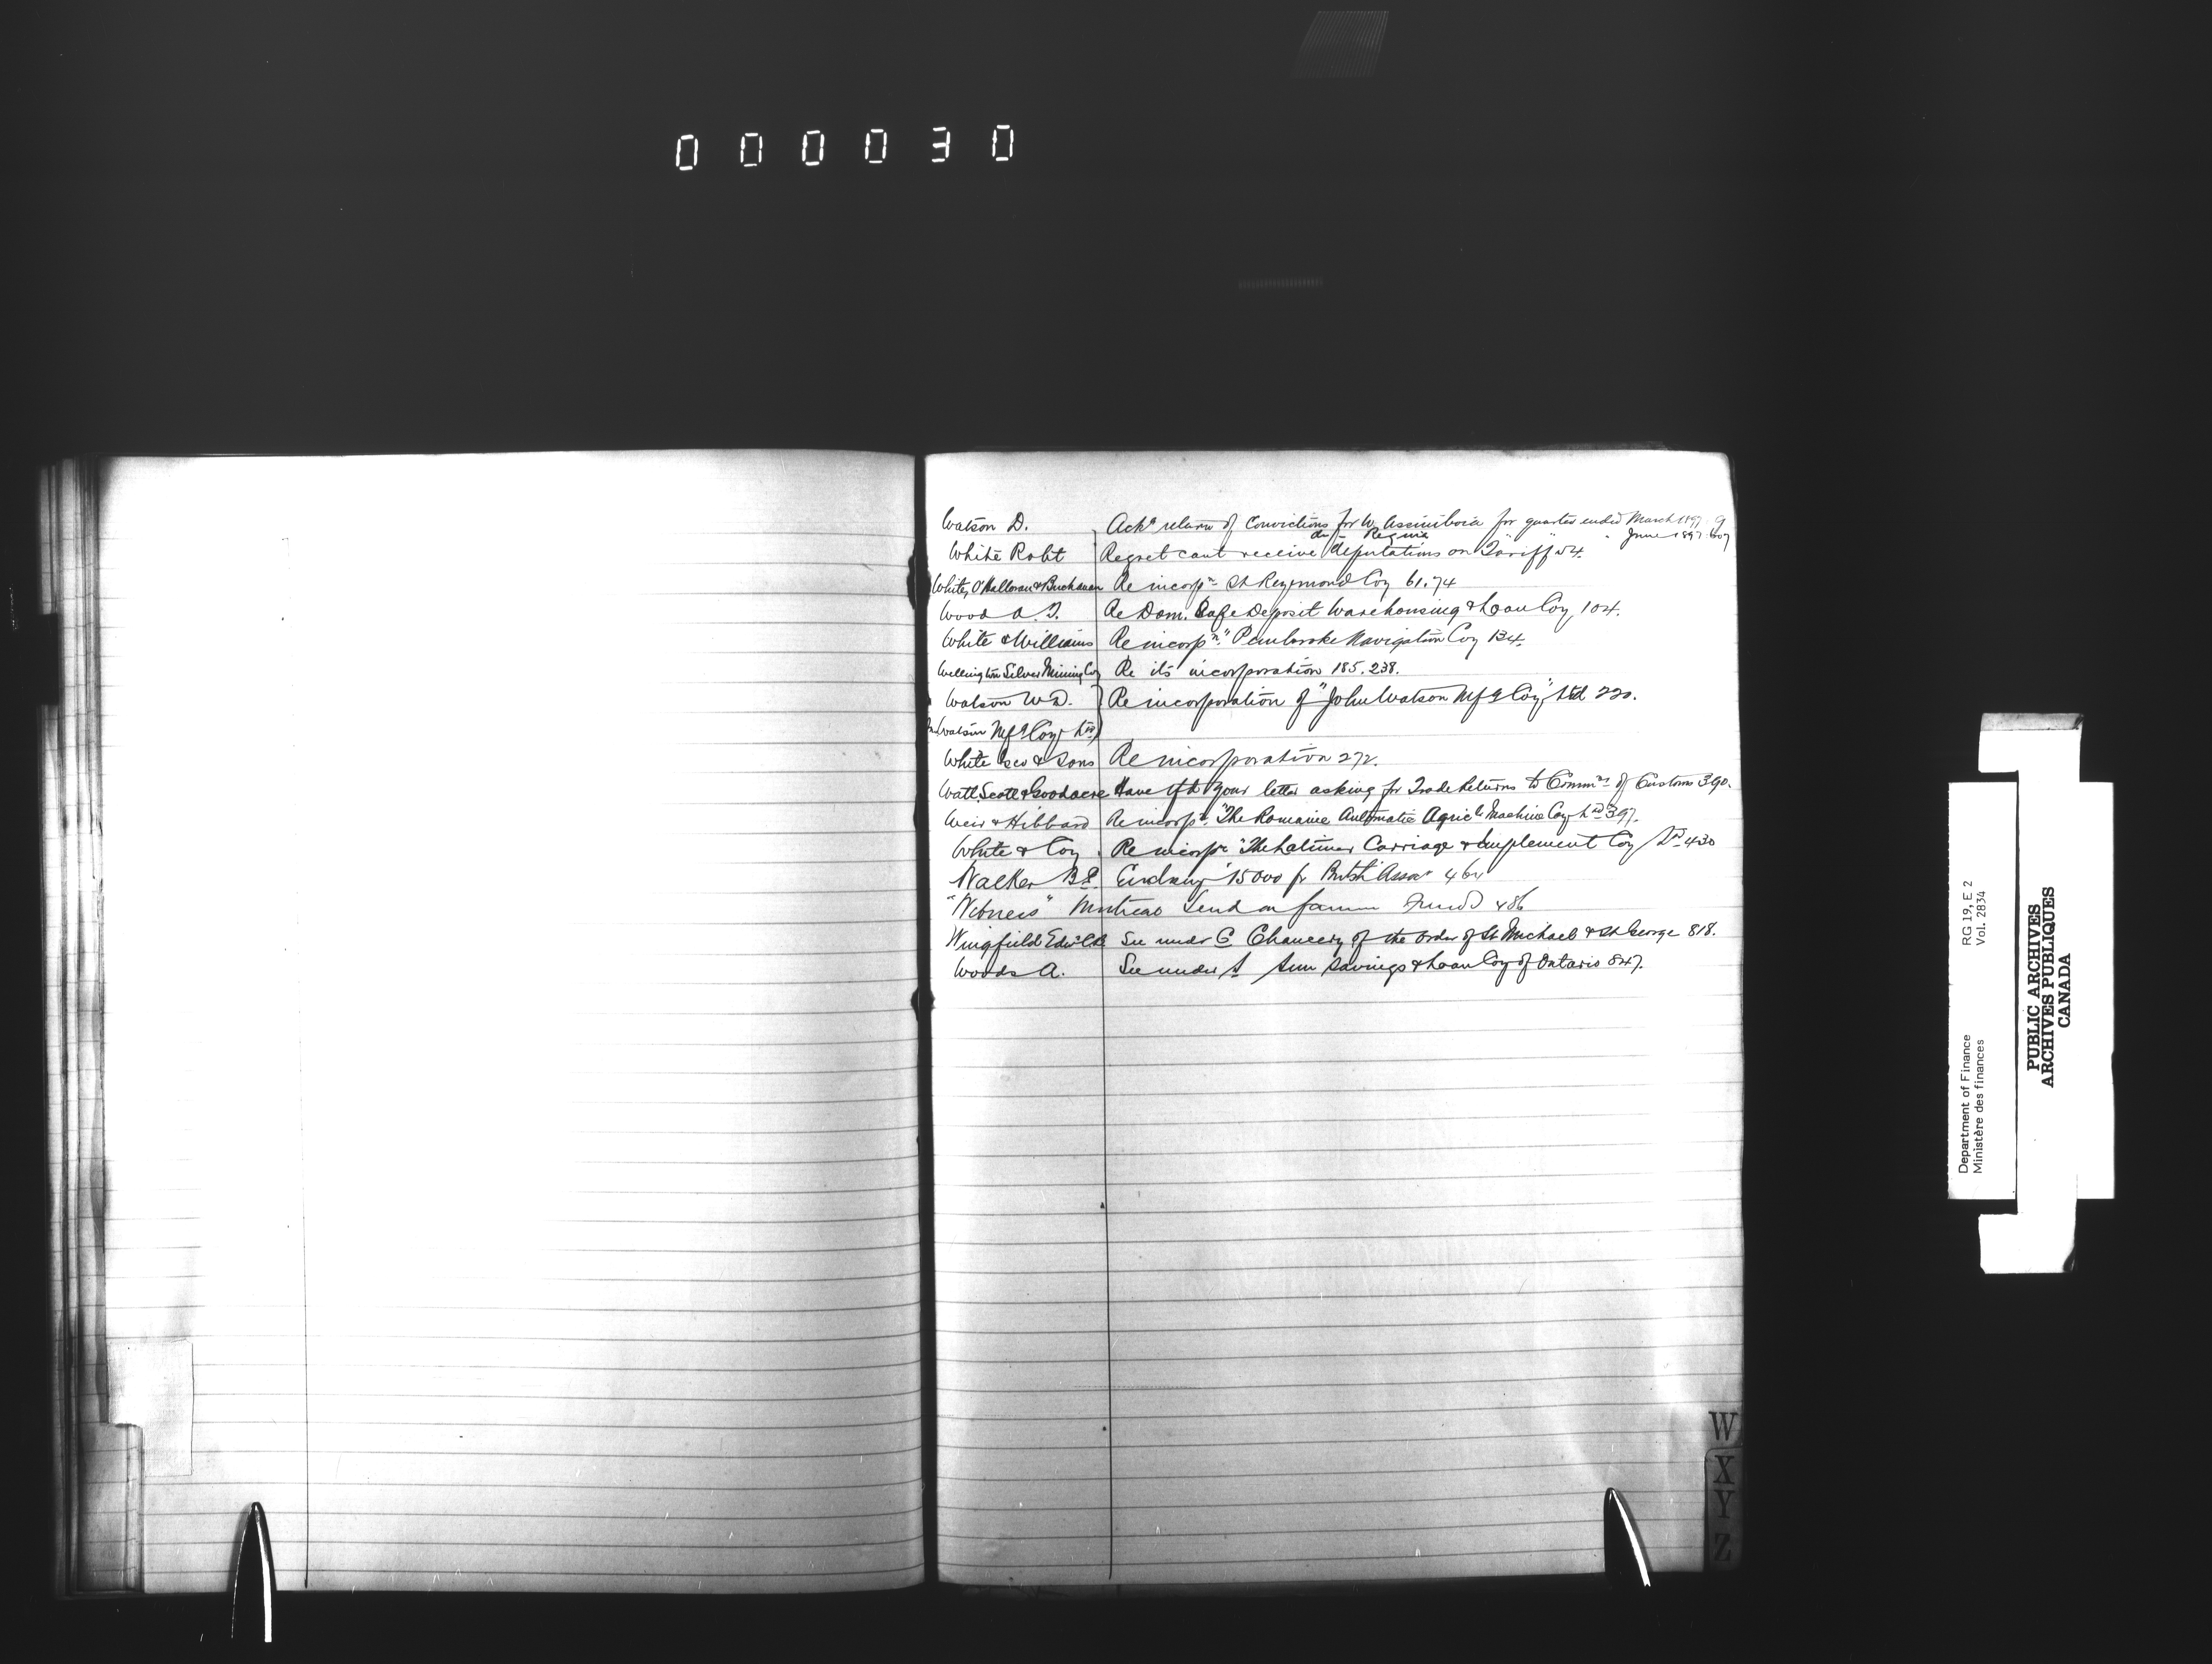 000030
Watson D. Ackg return of Convictions for W. Assiniboia for quarter ended March 1897. 9
do - Regina " June 1897. 607
White Robt Regret cant receive deputations on "Tariff" 54.
White, O'Halloran & Buchanan Re incorpn St Raymond Coy 61. 74
Wood A. T. Re Dom. Safe Deposit Warehousing & Loan Coy, 104.
White & Williams Re incorpn "Pembroke Navigation Coy 134.
Wellington Silver Mining Coy Re its incorporation 185. 238.
Watson W.D. Re incorporation of "John Watson Mfg Coy" Ltd 220.
Watson Mfg Coy Ltd
White Geo & Sons Re incorporation 272.
Watt, Scott & Goodacre Have tfd your letter asking for Trade Returns to Commr of Customs 390.
Weir & Hibbard Re incorpn "The Romaine Automatic Agricl Machine Coy Ld 397.
White & Coy Re incorpn "The Latimer Carriage & Implement Coy Ld 430
Walker B.E. 15000 for British Assocn 464
"Witness" Montreal Send on famine Fund 486
Wingfield Edwd See under C Chancery of the Order of St Michael & St George 818.
Woods A. See under S Sun Savings & Loan Coy of Ontario 847.
W
X
Y
Z
Department of Finance RG 19, E 2
Ministère des finances Vol. 2834
PUBLIC ARCHIVES
ARCHIVES PUBLIQUES
CANADA